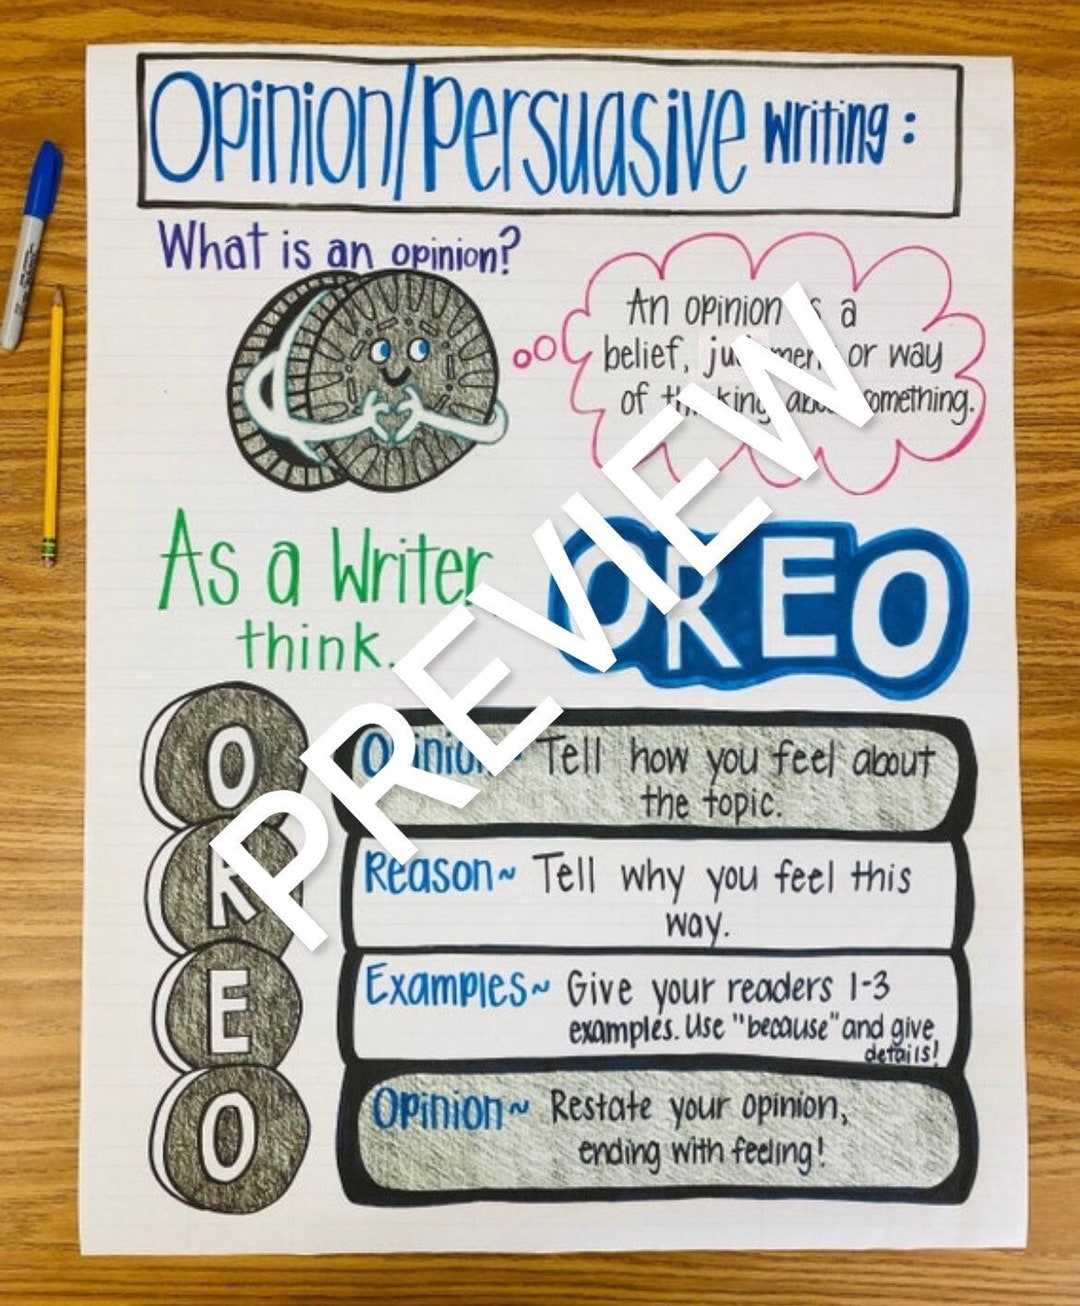 Opinion/Persuasive writing:
What is an opinion?
An opinion is a
belief, judgment or way
of thinking about something.
As a Writer,
think...
OREO
PREVIEW
O
Opinion~ Tell how you feel about
the topic.
R
Reason~ Tell why you feel this
way.
E
Examples~ Give your readers 1-3
examples. Use "because" and give
details!
O
Opinion~ Restate your opinion,
ending with feeling!